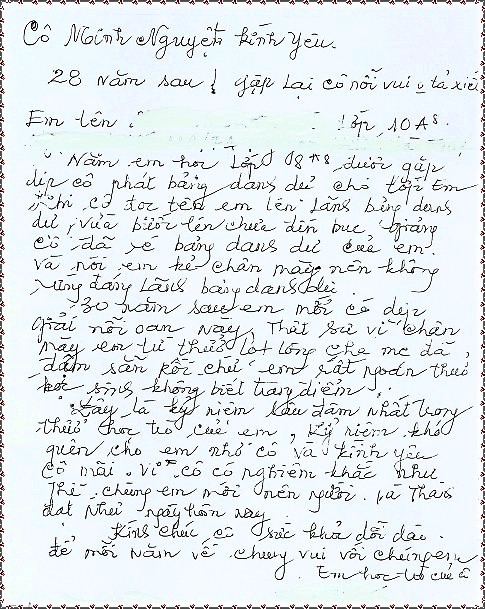 Cô Minh Nguyệt kính yêu.
28 năm sau! gặp lại cô nỗi vui o tả xiết
Em tên lớp 10A8.
Năm em học lớp 08A8 được gặp
dịp cô phát bảng danh dự cho lớp Em
khi cô đọc tên em lên lãnh bảng danh
dự, vừa bước lên chưa đến bục giảng
cô đã xé bảng danh dự của em.
và nói em kẻ chân mày nên không
xứng đáng lãnh bảng danh dự.
30 năm sau em mới có dịp
giải nỗi oan này, thật sự vì chân
mày em từ thuở lọt lòng cha mẹ đã
đậm sẵn rồi chứ em rất ngoan thuở
học sinh không biết trang điểm.
Đây là kỷ niệm sâu đậm nhất trong
thuở học trò của em, kỷ niệm khó
quên cho em nhớ cô và kính yêu
cô mãi. vì cô có nghiêm khắc như
thế chúng em mới nên người và thành
đạt như ngày hôm nay
Kính chúc cô sức khỏe dồi dào
để mỗi năm về chung vui với chúng em
Em học trò của cô